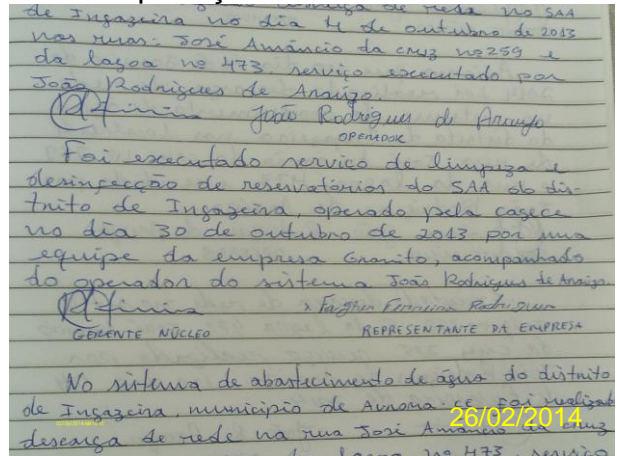 de rede no SAA
de Ingazeira no dia 4 de outubro de 2013
nas ruas: José Amâncio da cruz nº 259 e
da lagoa nº 473. serviço executado por
João Rodrigues de Araújo.
João Rodrigues de Araujo
OPERADOR
Foi executado serviço de limpeza e
desinfecção de reservatórios do SAA do dis-
trito de Ingazeira, operado pela cagece
no dia 30 de outubro de 2013 por uma
equipe da empresa Granito, acompanhado
do operador do sistema João Rodrigues de Araújo.
x Ferreira Rodrigues
GERENTE NÚCLEO REPRESENTANTE DA EMPRESA
No sistema de abastecimento de água do distrito
de Ingazeira, municipio de Aurora-ce foi realizado
26/02/2014
descarga de rede na rua José Amâncio da cruz
lagoa nº 473, serviço